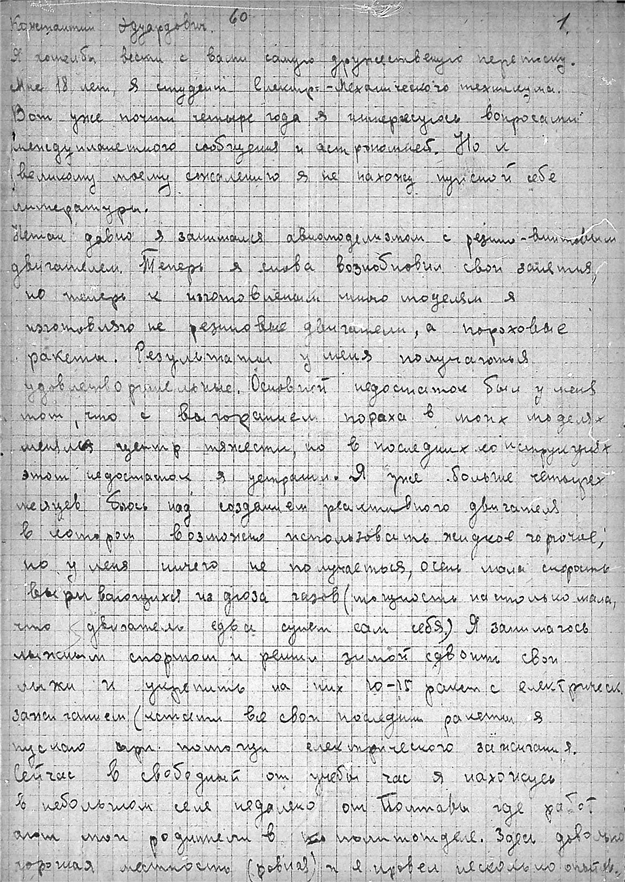 60
1.
Константин Эдуардович.
Я хотелбы вести с вами самую дружественую переписку.
Мне 18 лет, я студент Електро-Механического техникума.
Вот уже почти четыре года я интересуюсь вопросами
междупланетного сообщения и астрономией. Но к
великому моему сожалению я не нахожу нужной себе
литературы.
Нетак давно я занимался авиомоделизмом с резино-винтовым
двигателем. Теперь я снова возобновил свои занятия,
но теперь к изготовленым мною моделям я
изготовляю не резиновые двигатели, а пороховые
ракеты. Результаты у меня получаются
удовлетворительные. Основной недостаток был у меня
тот, что с выгоранием пораха в моих моделях
менялся центр тяжести, но в последних конструкциях
этот недостаток я устранил. Я уже больше четырех
месяцев бьюсь над созданием реактивного двигателя
в котором возможно использовать жидкое горючее,
но у меня ничего не получается, очень мала скорость
вырывающихся из дюза газов (мощность настолько мала,
что двигатель едва сунет сам себя.) Я занимаюсь
лыжным спортом и решил зимой сдвоить свои
лыжи и укрепить на них 10-15 ракет с електрическ.
зажиганием (кстати все свои последнии ракеты я
пускаю при помощи електрического зажигания.
Сейчас в свободный от учебы час я нахожусь
в небольшом селе недалеко от Полтавы где работ
ают мои родители в политотделе. Здесь довольно
хорошая местность (ровная) и я провел несколько опытов.